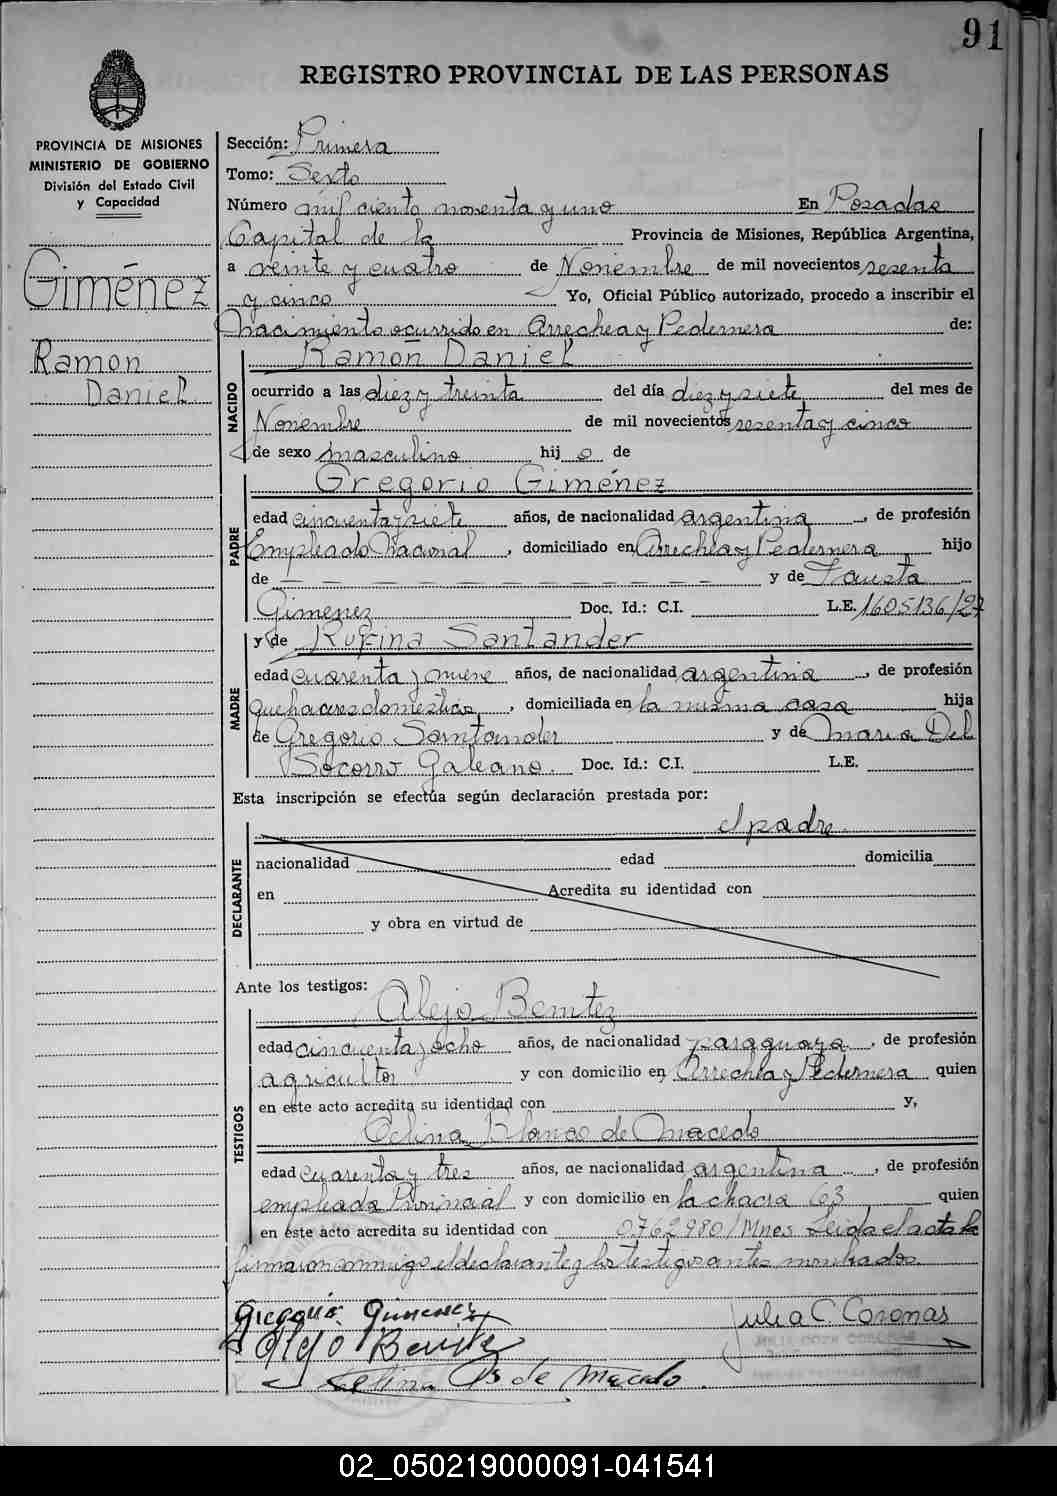 91
REGISTRO PROVINCIAL DE LAS PERSONAS
PROVINCIA DE MISIONES
MINISTERIO DE GOBIERNO
División del Estado Civil
y Capacidad
Giménez
Ramon
Daniel
Sección: Primera
Tomo: Sexto
Número mil ciento noventa y uno En Posadas
Capital de la Provincia de Misiones, República Argentina,
a veinte y cuatro de Noviembre de mil novecientos sesenta
y cinco Yo, Oficial Público autorizado, procedo a inscribir el
Nacimiento ocurrido en Arrechea y Pedernera de:
NACIDO
Ramon Daniel
ocurrido a las diez y treinta del día diez y siete del mes de
Noviembre de mil novecientos sesenta y cinco
de sexo masculino hij o de
PADRE
Gregorio Giménez
edad cincuenta y siete años, de nacionalidad argentina, de profesión
Empleado Nacional, domiciliado en Arrechea y Pedernera hijo
de — — — — — — — — — — — y de Fausta
Gimenez Doc. Id.: C.I. L.E. 1605136/27
y de Rufina Santander
MADRE
edad cuarenta y nueve años, de nacionalidad argentina, de profesión
quehaceres domesticos, domiciliada en la misma casa hija
de Gregorio Santander y de Maria Del
Socorro Galeano. Doc. Id.: C.I. L.E.
Esta inscripción se efectúa según declaración prestada por:
el padre
DECLARANTE
nacionalidad edad domicilia
en Acredita su identidad con
y obra en virtud de
Ante los testigos:
Alejo Benitez
TESTIGOS
edad cincuenta y ocho años, de nacionalidad paraguaya, de profesión
agricultor y con domicilio en Arrechea y Pedernera quien
en este acto acredita su identidad con y,
Celina Blanco de Macedo
edad cuarenta y tres años, de nacionalidad argentina, de profesión
empleada Provincial y con domicilio en la chacra 63 quien
en este acto acredita su identidad con 0.762.980/Mnes Leida el acta la
firmaron conmigo el declarante y los testigos antes nombrados.
Gregorio Gimenez
Julia C. Coronas
Alejo Benitez
Celina Bs de Macedo
02_050219000091-041541